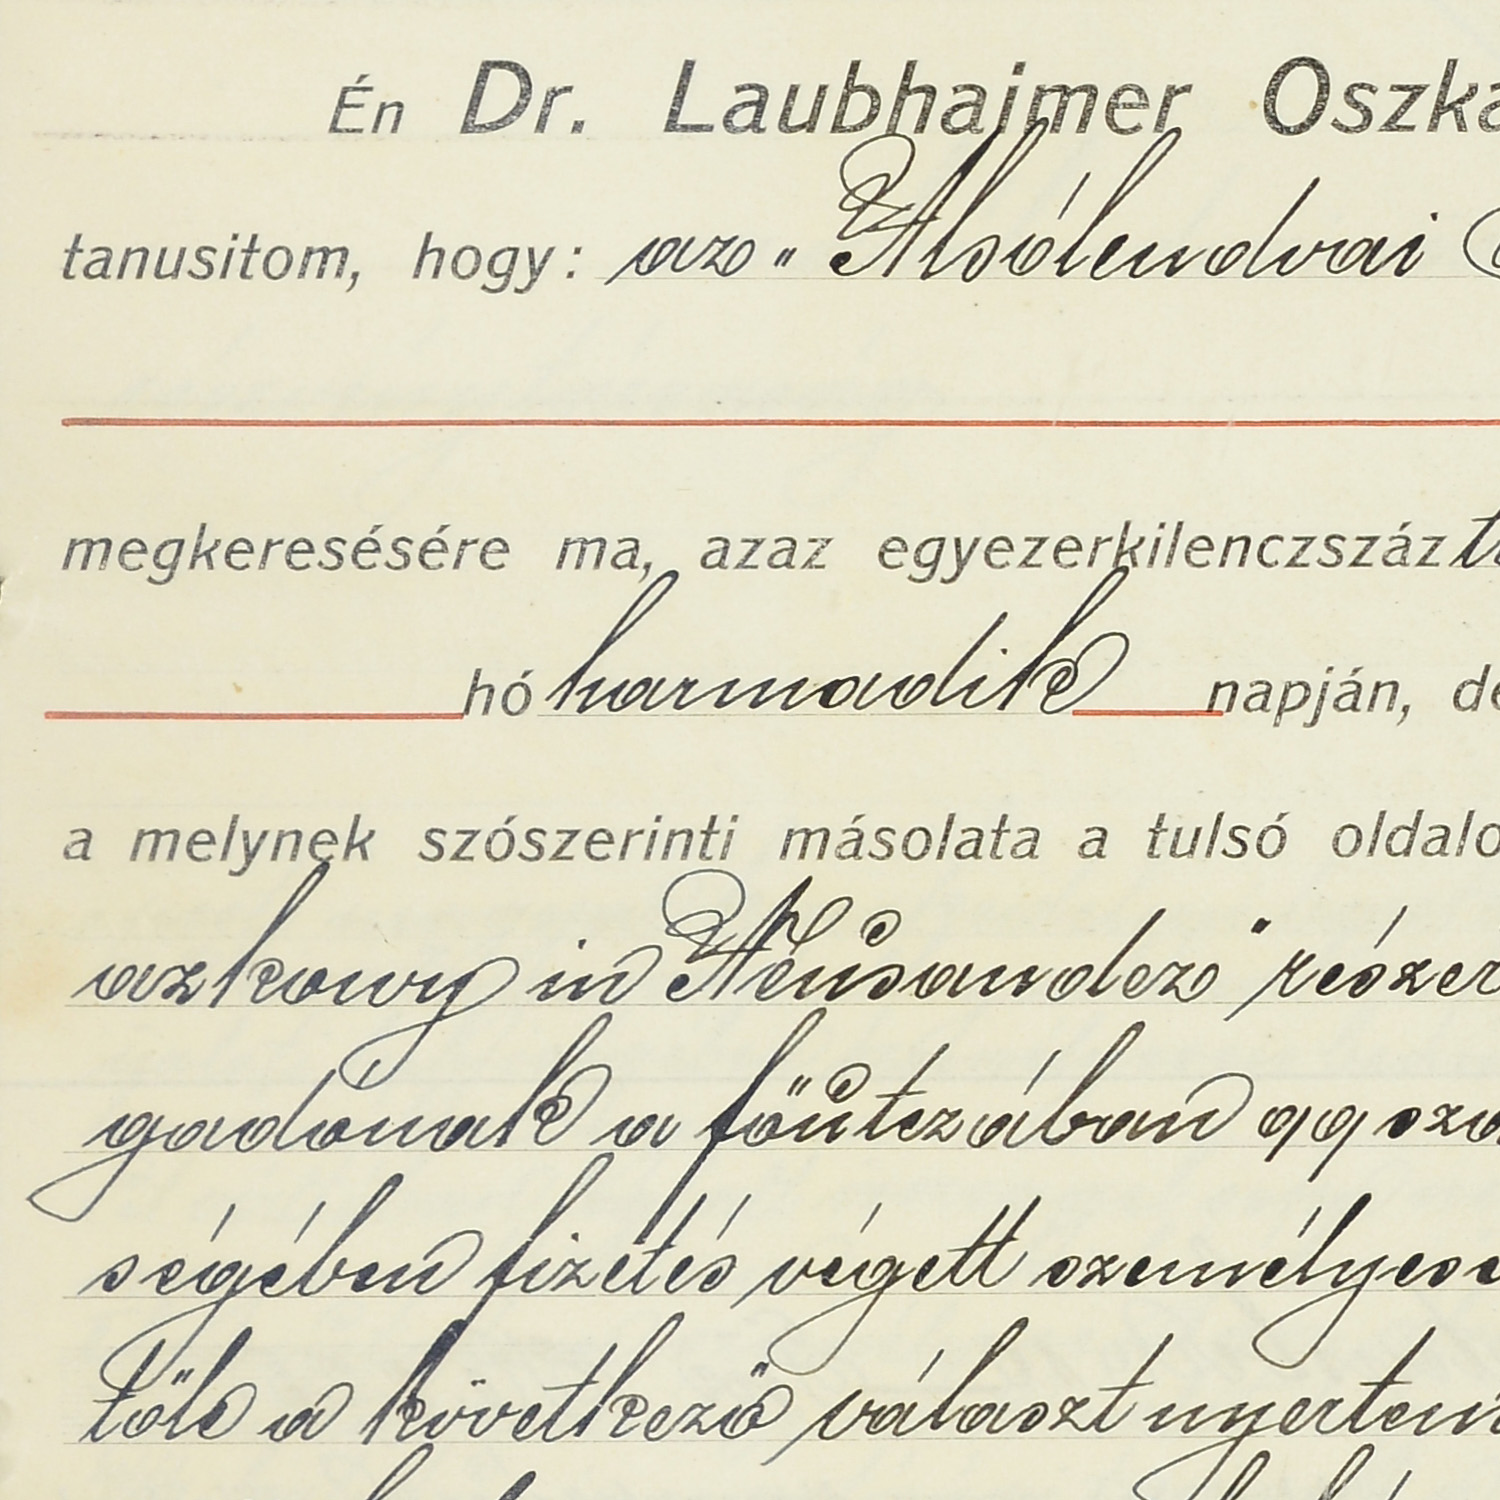 Én Dr. Laubhaimer Oszka
tanusitom, hogy: az „Alsólendvai
megkeresésére ma, azaz egyezerkilenczszáz
hó harmadik napján, de
a melynek szószerinti másolata a tulsó oldalo
azkowy in Neusandez" részér
gadónak a főútczában 99 szá
ségében fizetés végett személyese
tőle a következő választ nyertem